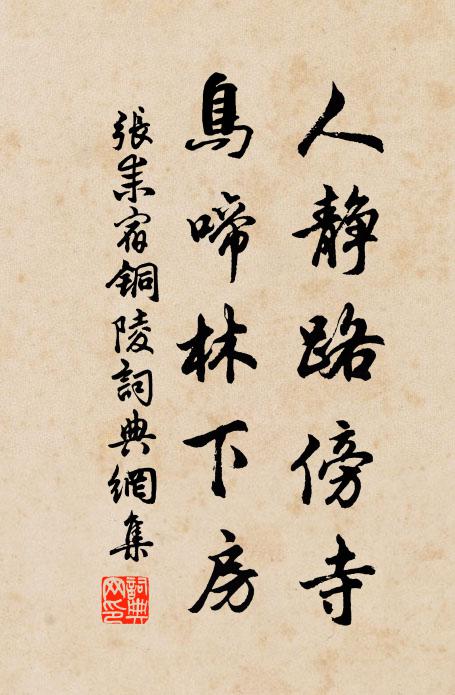 人靜路傍寺
鳥啼林下房
張耒宿銅陵詞典網集
詞典网印